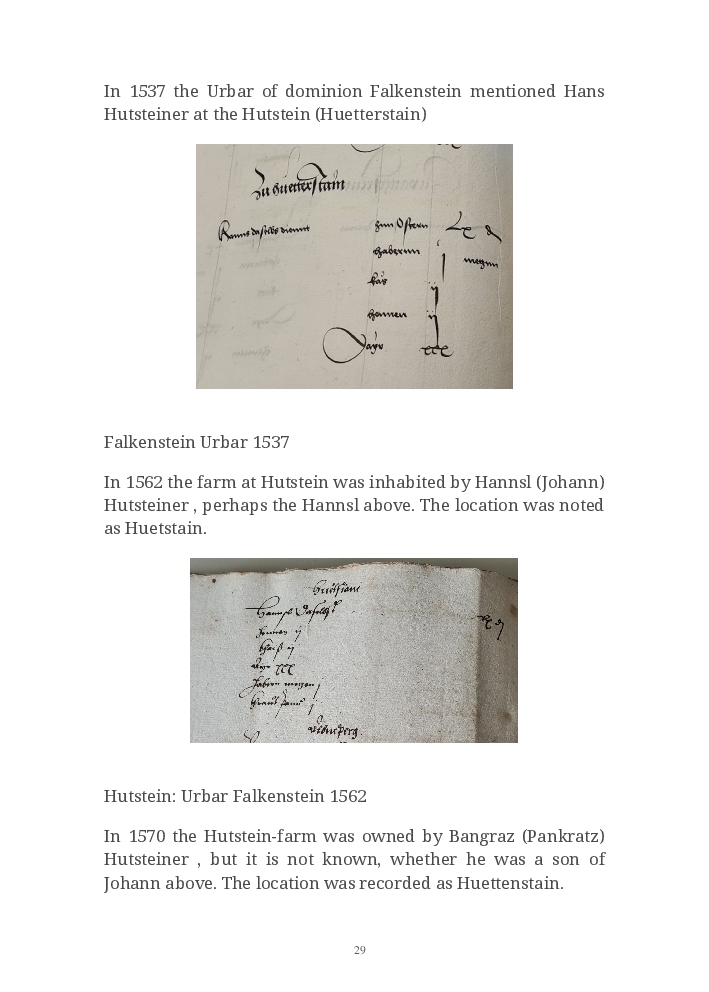 In 1537 the Urbar of dominion Falkenstein mentioned Hans
Hutsteiner at the Hutstein (Huetterstain)
Zu Huetterstain
Hanns daselbs diennt zun Ostern Lx d
habernn j metzn
kas ij
hennen ij
Ayr xxx
Falkenstein Urbar 1537
In 1562 the farm at Hutstein was inhabited by Hannsl (Johann)
Hutsteiner , perhaps the Hannsl above. The location was noted
as Huetstain.
Huetstain
Hannsl Daselbst
hennen ij
ij
Ayr xxx
habern metzen j
j
Hutstein: Urbar Falkenstein 1562
In 1570 the Hutstein-farm was owned by Bangraz (Pankratz)
Hutsteiner , but it is not known, whether he was a son of
Johann above. The location was recorded as Huettenstain.
29